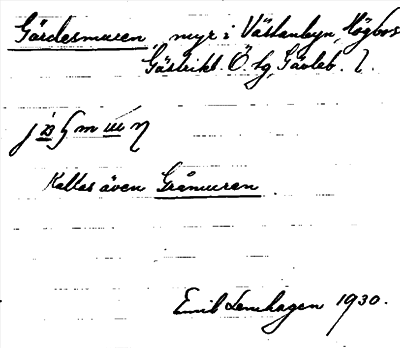 Gårdesmuren, myr i Västanbyn, Högbo s
Gästrikl. Ö. hg, Gävleb. l.
Kallas även Gråmuren
Emil Lenhagen 1930.